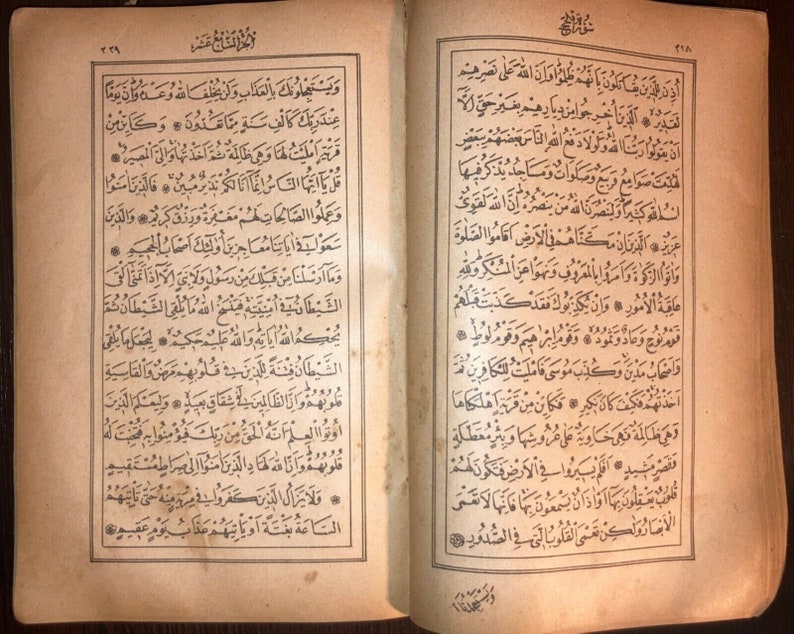 سورة الحج
٣٣٨
اُذِنَ لِلَّذِينَ يُقَاتَلُونَ بِاَنَّهُمْ ظُلِمُوا وَاِنَّ اللّٰهَ عَلٰى نَصْرِهِمْ
لَقَدِيرٌ ۞ اَلَّذِينَ اُخْرِجُوا مِنْ دِيَارِهِمْ بِغَيْرِ حَقٍّ اِلَّا
اَنْ يَقُولُوا رَبُّنَا اللّٰهُ وَلَوْلَا دَفْعُ اللّٰهِ النَّاسَ بَعْضَهُمْ بِبَعْضٍ
لَهُدِّمَتْ صَوَامِعُ وَبِيَعٌ وَصَلَوَاتٌ وَمَسَاجِدُ يُذْكَرُ فِيهَا
اسْمُ اللّٰهِ كَثِيرًا وَلَيَنْصُرَنَّ اللّٰهُ مَنْ يَنْصُرُهُ اِنَّ اللّٰهَ لَقَوِىٌّ
عَزِيزٌ ۞ اَلَّذِينَ اِنْ مَكَّنَّاهُمْ فِى الْاَرْضِ اَقَامُوا الصَّلٰوةَ
وَاٰتَوُا الزَّكٰوةَ وَاَمَرُوا بِالْمَعْرُوفِ وَنَهَوْا عَنِ الْمُنْكَرِ وَلِلّٰهِ
عَاقِبَةُ الْاُمُورِ ۞ وَاِنْ يُكَذِّبُوكَ فَقَدْ كَذَّبَتْ قَبْلَهُمْ
قَوْمُ نُوحٍ وَعَادٌ وَثَمُودُ ۞ وَقَوْمُ اِبْرٰهِيمَ وَقَوْمُ لُوطٍ ۞
وَاَصْحَابُ مَدْيَنَ وَكُذِّبَ مُوسٰى فَاَمْلَيْتُ لِلْكَافِرِينَ ثُمَّ
اَخَذْتُهُمْ فَكَيْفَ كَانَ نَكِيرِ ۞ فَكَاَيِّنْ مِنْ قَرْيَةٍ اَهْلَكْنَاهَا
وَهِىَ ظَالِمَةٌ فَهِىَ خَاوِيَةٌ عَلٰى عُرُوشِهَا وَبِئْرٍ مُعَطَّلَةٍ
وَقَصْرٍ مَشِيدٍ ۞ اَفَلَمْ يَسِيرُوا فِى الْاَرْضِ فَتَكُونَ لَهُمْ
قُلُوبٌ يَعْقِلُونَ بِهَا اَوْ اٰذَانٌ يَسْمَعُونَ بِهَا فَاِنَّهَا لَا تَعْمَى
الْاَبْصَارُ وَلٰكِنْ تَعْمَى الْقُلُوبُ الَّتِى فِى الصُّدُورِ ۞
وَيَسْتَعْجِلُونَكَ
الجزء السابع عشر
٣٣٩
وَيَسْتَعْجِلُونَكَ بِالْعَذَابِ وَلَنْ يُخْلِفَ اللّٰهُ وَعْدَهُ وَاِنَّ يَوْمًا
عِنْدَ رَبِّكَ كَاَلْفِ سَنَةٍ مِمَّا تَعُدُّونَ ۞ وَكَاَيِّنْ مِنْ
قَرْيَةٍ اَمْلَيْتُ لَهَا وَهِىَ ظَالِمَةٌ ثُمَّ اَخَذْتُهَا وَاِلَىَّ الْمَصِيرُ ۞
قُلْ يَا اَيُّهَا النَّاسُ اِنَّمَا اَنَا لَكُمْ نَذِيرٌ مُبِينٌ ۞ فَالَّذِينَ اٰمَنُوا
وَعَمِلُوا الصَّالِحَاتِ لَهُمْ مَغْفِرَةٌ وَرِزْقٌ كَرِيمٌ ۞ وَالَّذِينَ
سَعَوْا فِى اٰيَاتِنَا مُعَاجِزِينَ اُولٰئِكَ اَصْحَابُ الْجَحِيمِ ۞
وَمَا اَرْسَلْنَا مِنْ قَبْلِكَ مِنْ رَسُولٍ وَلَا نَبِىٍّ اِلَّا اِذَا تَمَنّٰى اَلْقَى
الشَّيْطَانُ فِى اُمْنِيَّتِهِ فَيَنْسَخُ اللّٰهُ مَا يُلْقِى الشَّيْطَانُ ثُمَّ
يُحْكِمُ اللّٰهُ اٰيَاتِهِ وَاللّٰهُ عَلِيمٌ حَكِيمٌ ۞ لِيَجْعَلَ مَا يُلْقِى
الشَّيْطَانُ فِتْنَةً لِلَّذِينَ فِى قُلُوبِهِمْ مَرَضٌ وَالْقَاسِيَةِ
قُلُوبُهُمْ وَاِنَّ الظَّالِمِينَ لَفِى شِقَاقٍ بَعِيدٍ ۞ وَلِيَعْلَمَ الَّذِينَ
اُوتُوا الْعِلْمَ اَنَّهُ الْحَقُّ مِنْ رَبِّكَ فَيُؤْمِنُوا بِهِ فَتُخْبِتَ لَهُ
قُلُوبُهُمْ وَاِنَّ اللّٰهَ لَهَادِ الَّذِينَ اٰمَنُوا اِلٰى صِرَاطٍ مُسْتَقِيمٍ
۞ وَلَا يَزَالُ الَّذِينَ كَفَرُوا فِى مِرْيَةٍ مِنْهُ حَتّٰى تَاْتِيَهُمُ
السَّاعَةُ بَغْتَةً اَوْ يَاْتِيَهُمْ عَذَابُ يَوْمٍ عَقِيمٍ ۞